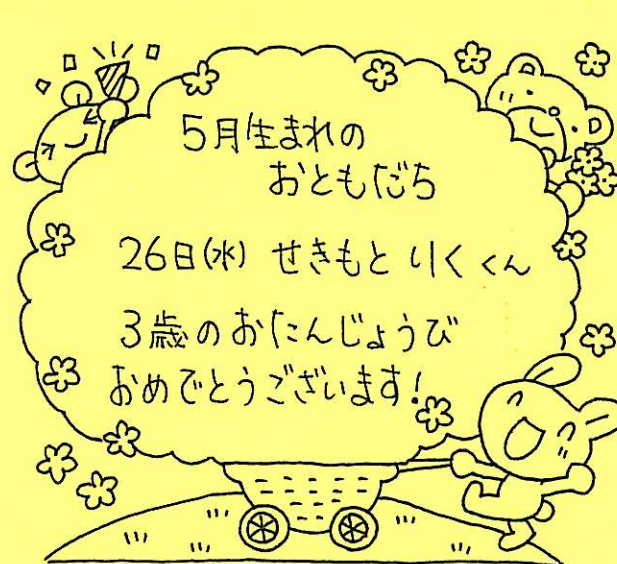 5月生まれの
おともだち
26日(水) せきもと りく くん
3歳のおたんじょうび
おめでとうございます!